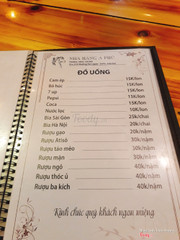 NHÀ HÀNG A PHỦ
ĐỒ UỐNG
Cam ép 15K/lon
Bò húc 15K/lon
7 up 15K/lon
Pepsi 15K/lon
Coca 15K/lon
Nước lọc 10K/lon
Bia Sài Gòn 25k/chai
Bia Hà Nội 20k/chai
Rượu gạo 20k/nậm
Rượu Atisô 30k/nậm
Rượu táo mèo 30k/nậm
Rượu mận 30k/nậm
Rượu ngô 40k/nậm
Rượu thóc ủ 40k/nậm
Rượu ba kích 40k/nậm
Kính chúc quý khách ngon miệng
Foody